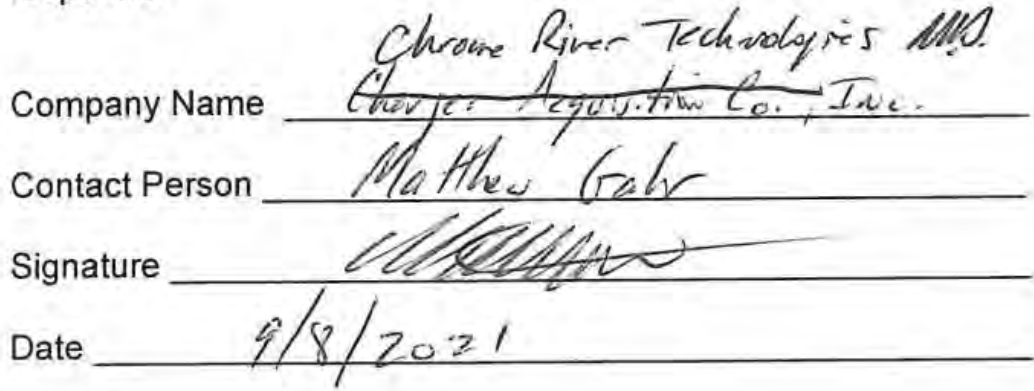 Chrome River Technologies
Company Name Charger Acquisition Co., Inc.
Contact Person Matthew Gahr
Signature
Date 9/8/2021